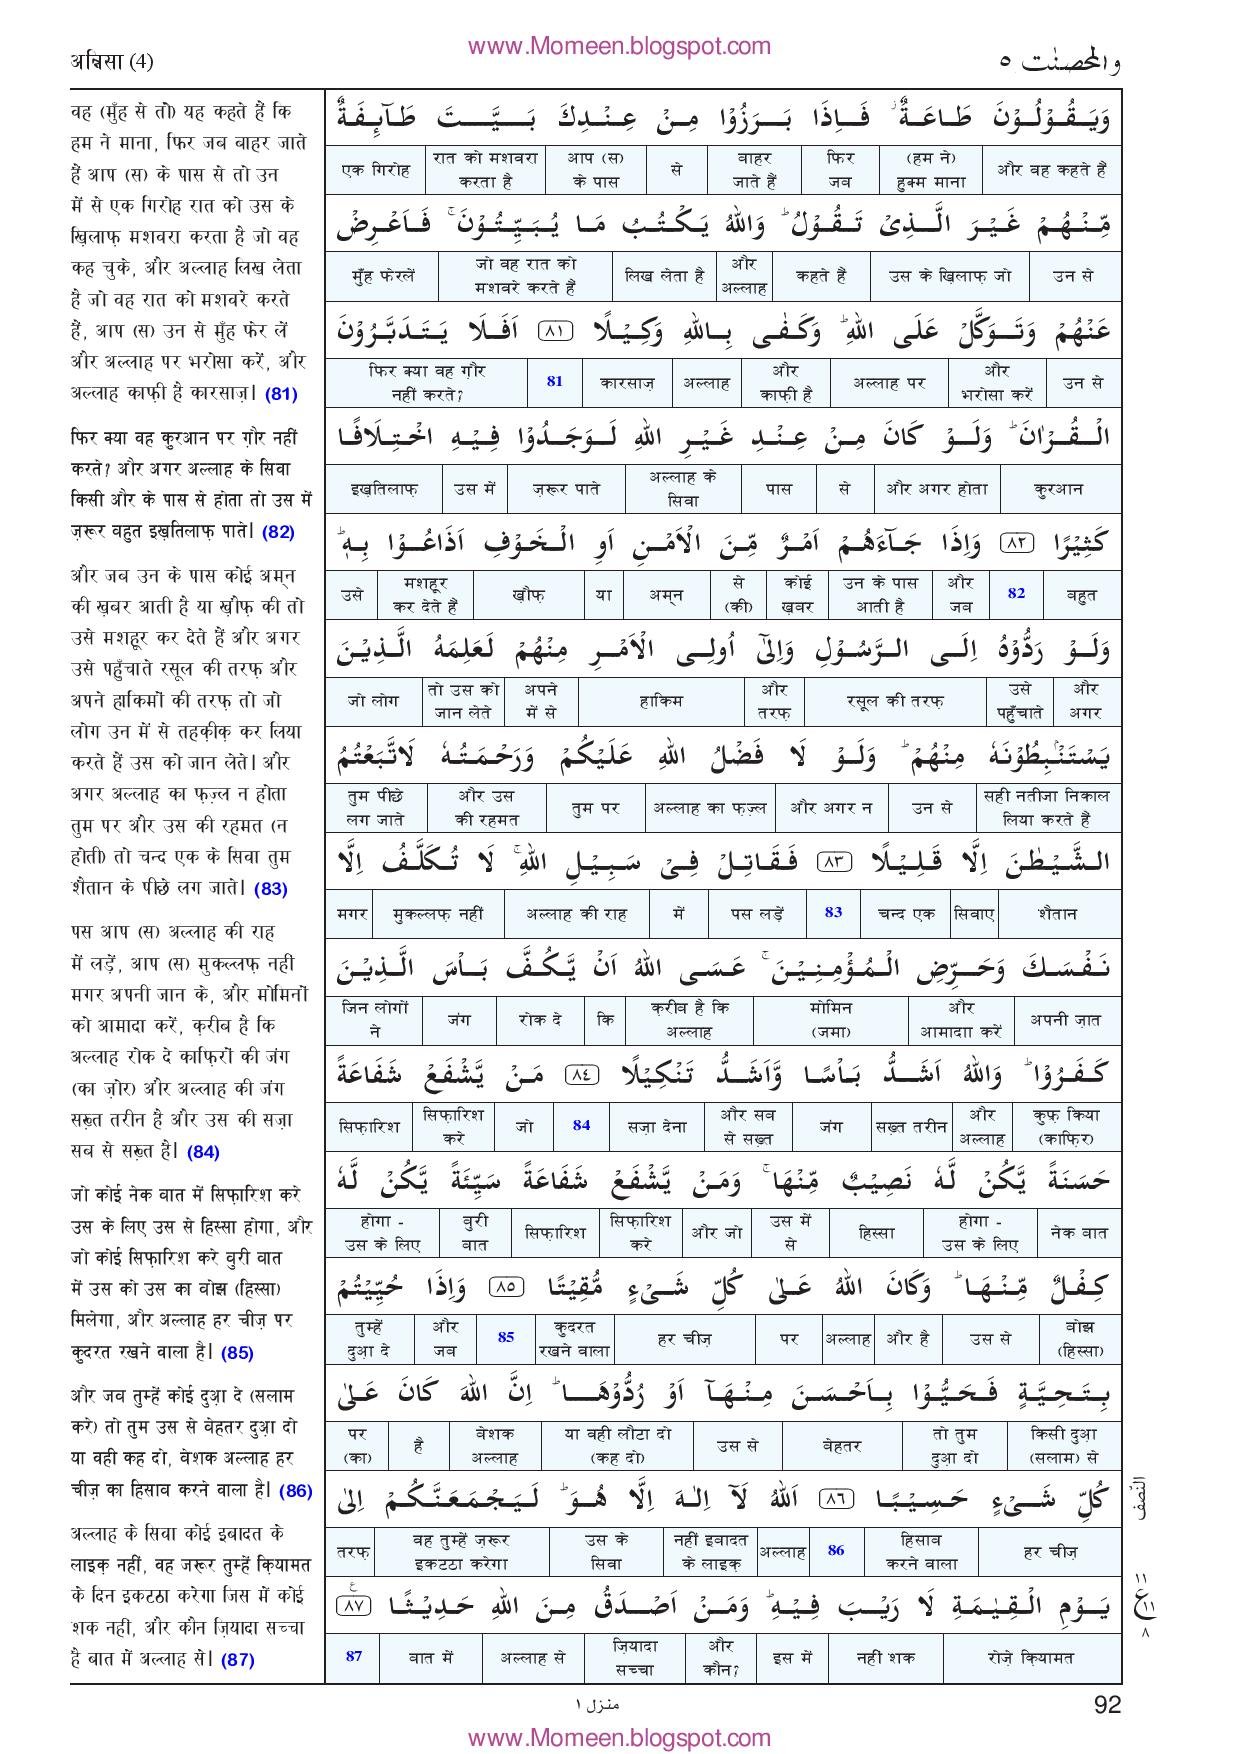 www.Momeen.blogspot.com
अन्निसा (4)
والمحصنٰت ٥
वह (मुँह से तो) यह कहते हैं कि
हम ने माना, फिर जब बाहर जाते
हैं आप (स) के पास से तो उन
में से एक गिरोह रात को उस के
ख़िलाफ़ मशवरा करता है जो वह
कह चुके, और अल्लाह लिख लेता
है जो वह रात को मशवरे करते
हैं, आप (स) उन से मुँह फेर लें
और अल्लाह पर भरोसा करें, और
अल्लाह काफ़ी है कारसाज़। (81)
फिर क्या वह कुरआन पर ग़ौर नहीं
करते? और अगर अल्लाह के सिवा
किसी और के पास से होता तो उस में
ज़रूर बहुत इख़तिलाफ़ पाते। (82)
और जब उन के पास कोई अम्न
की ख़बर आती है या ख़ौफ़ की तो
उसे मशहूर कर देते हैं और अगर
उसे पहुँचाते रसूल की तरफ़ और
अपने हाकिमों की तरफ़ तो जो
लोग उन में से तहक़ीक़ कर लिया
करते हैं उस को जान लेते। और
अगर अल्लाह का फज़्ल न होता
तुम पर और उस की रहमत (न
होती) तो चन्द एक के सिवा तुम
शैतान के पीछे लग जाते। (83)
पस आप (स) अल्लाह की राह
में लड़ें, आप (स) मुकल्लफ़ नहीं
मगर अपनी जान के, और मोमिनों
को आमादा करें, क़रीब है कि
अल्लाह रोक दे काफ़िरों की जंग
(का ज़ोर) और अल्लाह की जंग
सख़्त तरीन है और उस की सज़ा
सब से सख़्त है। (84)
जो कोई नेक बात में सिफ़ारिश करे
उस के लिए उस से हिस्सा होगा, और
जो कोई सिफ़ारिश करे बुरी बात
में उस को उस का बोझ (हिस्सा)
मिलेगा, और अल्लाह हर चीज़ पर
कुदरत रखने वाला है। (85)
और जब तुम्हें कोई दुआ़ दे (सलाम
करे) तो तुम उस से बेहतर दुआ़ दो
या वही कह दो, बेशक अल्लाह हर
चीज़ का हिसाब करने वाला है। (86)
अल्लाह के सिवा कोई इबादत के
लाइक़ नहीं, वह ज़रूर तुम्हें क़ियामत
के दिन इकटठा करेगा जिस में कोई
शक नहीं, और कौन ज़ियादा सच्चा
है बात में अल्लाह से। (87)
وَيَقُوۡلُوۡنَ طَاعَةٌ ۫ فَاِذَا بَرَزُوۡا مِنۡ عِنۡدِكَ بَيَّتَ طَآئِفَةٌ
और वह कहते हैं (हम ने) हुक्म माना फिर जब बाहर जाते हैं से आप (स) के पास रात को मशवरा करता है एक गिरोह
مِّنۡهُمۡ غَيۡرَ الَّذِىۡ تَقُوۡلُ ؕ وَاللّٰهُ يَكۡتُبُ مَا يُبَيِّتُوۡنَ ۚ فَاَعۡرِضۡ
उन से उस के ख़िलाफ़ जो कहते हैं और अल्लाह लिख लेता है जो वह रात को मशवरे करते हैं मुँह फेरलें
عَنۡهُمۡ وَتَوَكَّلۡ عَلَى اللّٰهِ ؕ وَكَفٰى بِاللّٰهِ وَكِيۡلًا ۸۱ اَفَلَا يَتَدَبَّرُوۡنَ
उन से और भरोसा करें अल्लाह पर और काफ़ी है अल्लाह कारसाज़ 81 फिर क्या वह ग़ौर नहीं करते?
الۡقُرۡاٰنَ ؕ وَلَوۡ كَانَ مِنۡ عِنۡدِ غَيۡرِ اللّٰهِ لَوَجَدُوۡا فِيۡهِ اخۡتِلَافًا
कुरआन और अगर होता से पास अल्लाह के सिवा ज़रूर पाते उस में इख़तिलाफ़
كَثِيۡرًا ۸۲ وَاِذَا جَآءَهُمۡ اَمۡرٌ مِّنَ الۡاَمۡنِ اَوِ الۡخَوۡفِ اَذَاعُوۡا بِهٖ ؕ
बहुत 82 और जब उन के पास आती है कोई ख़बर से (की) अम्न या ख़ौफ़ मशहूर कर देते हैं उसे
وَلَوۡ رَدُّوۡهُ اِلَى الرَّسُوۡلِ وَاِلٰٓى اُولِى الۡاَمۡرِ مِنۡهُمۡ لَعَلِمَهُ الَّذِيۡنَ
और अगर उसे पहुँचाते रसूल की तरफ़ और तरफ़ हाकिम अपने में से तो उस को जान लेते जो लोग
يَسۡتَنۡۢبِطُوۡنَهٗ مِنۡهُمۡ ؕ وَلَوۡ لَا فَضۡلُ اللّٰهِ عَلَيۡكُمۡ وَرَحۡمَتُهٗ لَاتَّبَعۡتُمُ
सही नतीजा निकाल लिया करते हैं उन से और अगर न अल्लाह का फज़्ल तुम पर और उस की रहमत तुम पीछे लग जाते
الشَّيۡطٰنَ اِلَّا قَلِيۡلًا ۸۳ فَقَاتِلۡ فِىۡ سَبِيۡلِ اللّٰهِ ۚ لَا تُكَلَّفُ اِلَّا
शैतान सिवाए चन्द एक 83 पस लड़ें में अल्लाह की राह मुकल्लफ़ नहीं मगर
نَفۡسَكَ وَحَرِّضِ الۡمُؤۡمِنِيۡنَ ۚ عَسَى اللّٰهُ اَنۡ يَّكُفَّ بَاۡسَ الَّذِيۡنَ
अपनी ज़ात और आमादा करें मोमिन (जमा) क़रीब है कि अल्लाह कि रोक दे जंग जिन लोगों ने
كَفَرُوۡا ؕ وَاللّٰهُ اَشَدُّ بَاۡسًا وَّاَشَدُّ تَنۡكِيۡلًا ۸٤ مَنۡ يَّشۡفَعۡ شَفَاعَةً
कुफ़ किया (काफ़िर) और अल्लाह सख़्त तरीन जंग और सब से सख़्त सज़ा देना 84 जो सिफ़ारिश करे सिफ़ारिश
حَسَنَةً يَّكُنۡ لَّهٗ نَصِيۡبٌ مِّنۡهَا ۚ وَمَنۡ يَّشۡفَعۡ شَفَاعَةً سَيِّئَةً يَّكُنۡ لَّهٗ
नेक बात होगा - उस के लिए हिस्सा उस में से और जो सिफ़ारिश करे सिफ़ारिश बुरी बात होगा - उस के लिए
كِفۡلٌ مِّنۡهَا ؕ وَكَانَ اللّٰهُ عَلٰى كُلِّ شَىۡءٍ مُّقِيۡتًا ۸٥ وَاِذَا حُيِّيۡتُمۡ
बोझ (हिस्सा) उस से और है अल्लाह पर हर चीज़ कुदरत रखने वाला 85 और जब तुम्हें दुआ़ दे
بِتَحِيَّةٍ فَحَيُّوۡا بِاَحۡسَنَ مِنۡهَآ اَوۡ رُدُّوۡهَا ؕ اِنَّ اللّٰهَ كَانَ عَلٰى
किसी दुआ़ (सलाम) से तो तुम दुआ़ दो बेहतर उस से या वही लौटा दो (कह दो) बेशक अल्लाह है पर (का)
كُلِّ شَىۡءٍ حَسِيۡبًا ۸٦ اَللّٰهُ لَآ اِلٰهَ اِلَّا هُوَ ؕ لَيَجۡمَعَنَّكُمۡ اِلٰى
हर चीज़ हिसाब करने वाला 86 अल्लाह नहीं इबादत के लाइक़ उस के सिवा वह तुम्हें ज़रूर इकटठा करेगा तरफ़
يَوۡمِ الۡقِيٰمَةِ لَا رَيۡبَ فِيۡهِ ؕ وَمَنۡ اَصۡدَقُ مِنَ اللّٰهِ حَدِيۡثًا ۸۷ ع
रोज़े क़ियामत नहीं शक इस में और कौन? ज़ियादा सच्चा अल्लाह से बात में 87
النصف
١١
ع ١١
٨
منزل ١
92
www.Momeen.blogspot.com